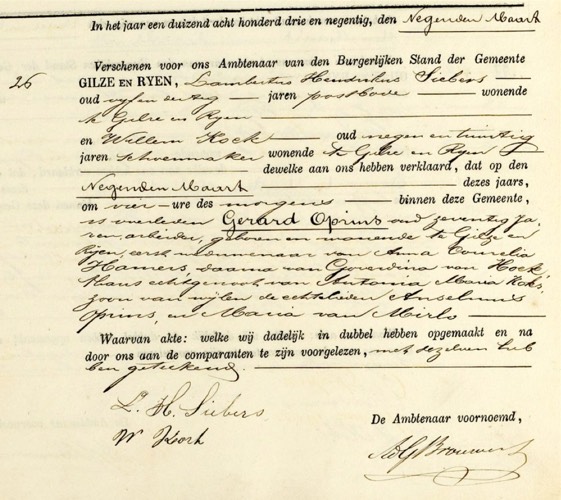 In het jaar een duizend acht honderd drie en negentig, den Negenden Maart
Verschenen voor ons Ambtenaar van den Burgerlijken Stand der Gemeente
26
GILZE EN RYEN, Lambertus Hendrikus Siebers
oud vijf en dertig jaren postbode wonende
te Gilze en Ryen
en Willem Kock oud negen en twintig
jaren schoenmaker wonende te Gilze en Ryen
dewelke aan ons hebben verklaard, dat op den
Negenden Maart dezes jaars,
om vier ure des morgens binnen deze Gemeente,
is overleden Gerard Oprins oud zeventig ja
ren, arbeider, geboren en wonende te Gilze en
Ryen, eerst weduwenaar van Anna Cornelia
Hamers, daarna van Goverdina van Hoek,
thans echtgenoot van Antonia Maria Koks,
zoon van wijlen de echtelieden Anselmus
Oprins en Maria van Mierlo
Waarvan akte: welke wij dadelijk in dubbel hebben opgemaakt en na
door ons aan de comparanten te zijn voorgelezen, met dezelven heb
ben geteekend.
L. H. Siebers
W Kock
De Ambtenaar voornoemd,
AdGBrouwers